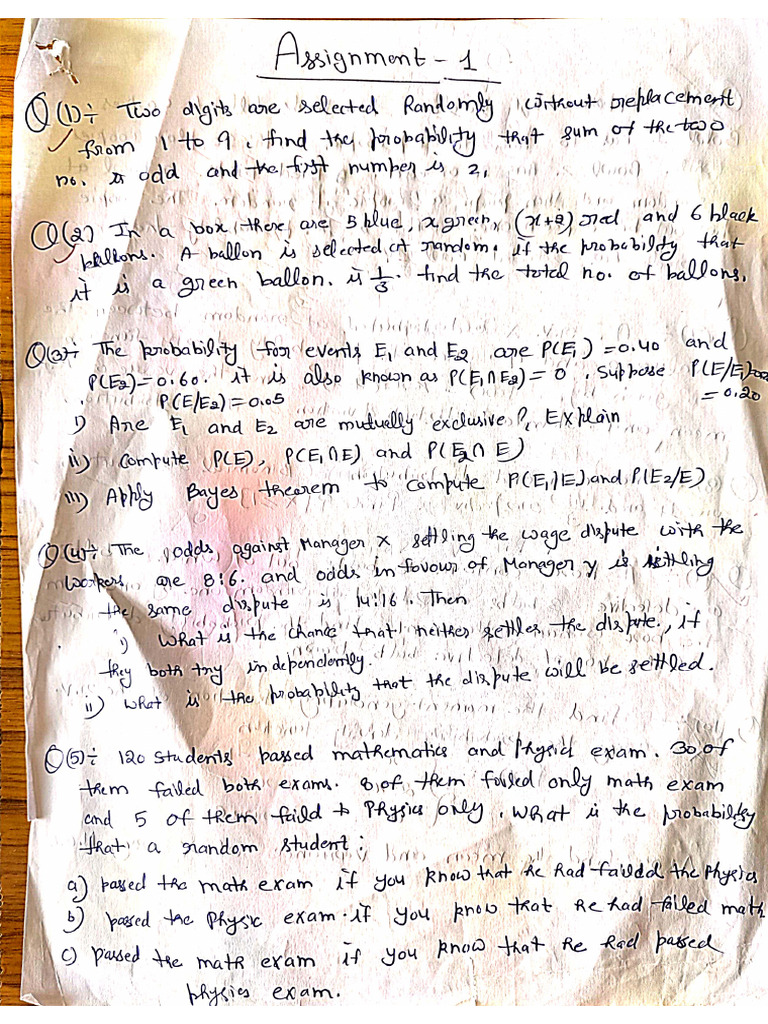 Assignment - 1
Q(1)÷ Two digits are selected Randomly without replacement
from 1 to 9. find the propability that sum of the two
no. is odd and the first number is 2.
Q(2) In a box there are 5 blue, x green, (x+2) red and 6 black
ballons. A ballon is selected at random. if the probability that
it is a green ballon. is 1/3. find the total no. of ballons.
Q(3)÷ The probability for events E1 and E2 are P(E1) = 0.40 and
P(E2) = 0.60. it is also known as P(E1∩E2) = 0. Suppose P(E/E1)
= 0.20
P(E/E2) = 0.05
i) Are E1 and E2 are mutually exclusive?, Explain
ii) compute P(E), P(E1∩E) and P(E2∩E)
iii) Apply Bayes theorem to compute P(E1/E) and P(E2/E)
Q(4)÷ The odds against Manager X settling the wage dispute with the
workers are 8:6. and odds in favour of Manager y is settling
the same dispute is 14:16. Then
i) What is the chance that neither settles the dispute., if
they both try independently.
ii) what is the probability that the dispute will be settled.
Q(5)÷ 120 students passed mathematics and physics exam. 30 of
them failed both exams. 8 of them failed only math exam
and 5 of them faild to Physics only. What is the probability
that a random student:
a) passed the math exam if you know that he had failed the physics
b) passed the Physic exam. if you know that he had failed math
c) passed the math exam if you know that he had passed
physics exam.